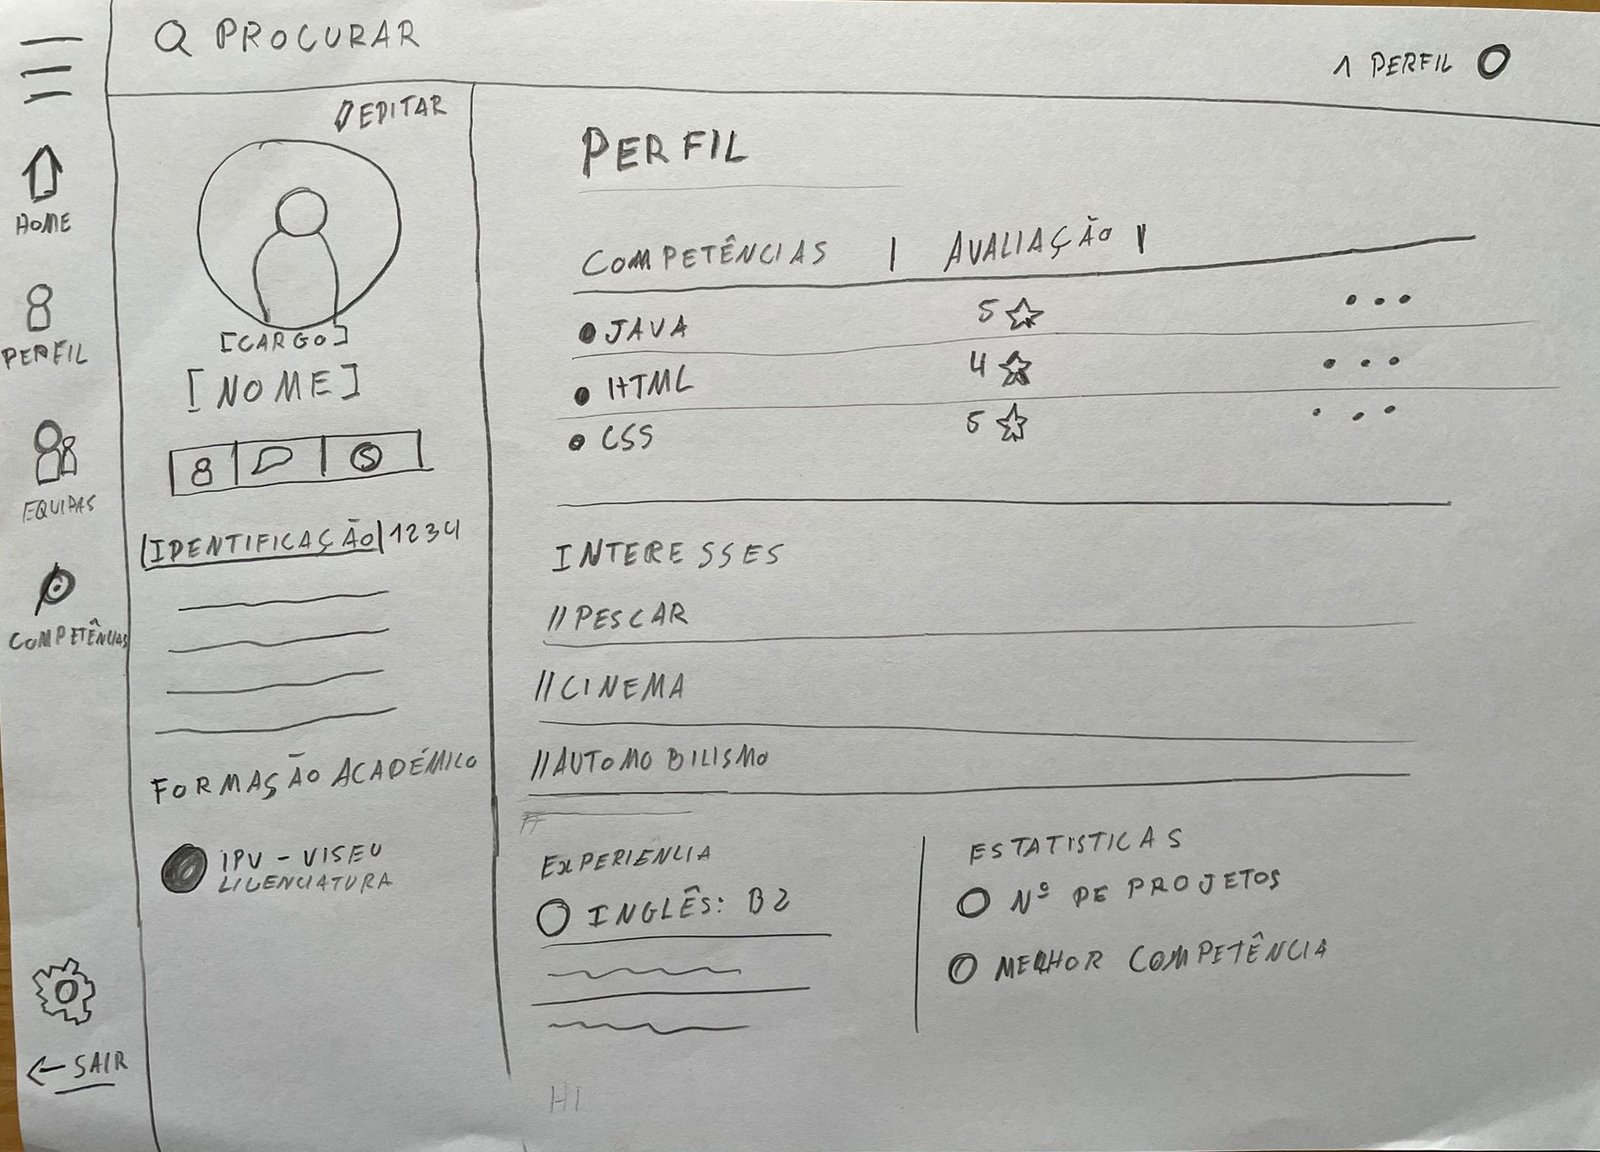 PROCURAR
1 PERFIL
HOME
PERFIL
EQUIPAS
COMPETÊNCIAS
SAIR
EDITAR
[CARGO]
[NOME]
|IDENTIFICAÇÃO| 1234
FORMAÇÃO ACADÉMICO
IPV - VISEU
LICENCIATURA
PERFIL
COMPETÊNCIAS | AVALIAÇÃO |
JAVA 5 ...
HTML 4 ...
CSS 5 ...
INTERESSES
//PESCAR
//CINEMA
//AUTOMOBILISMO
EXPERIÊNCIA
INGLÊS: B2
ESTATISTICAS
Nº DE PROJETOS
MELHOR COMPETÊNCIA
HI